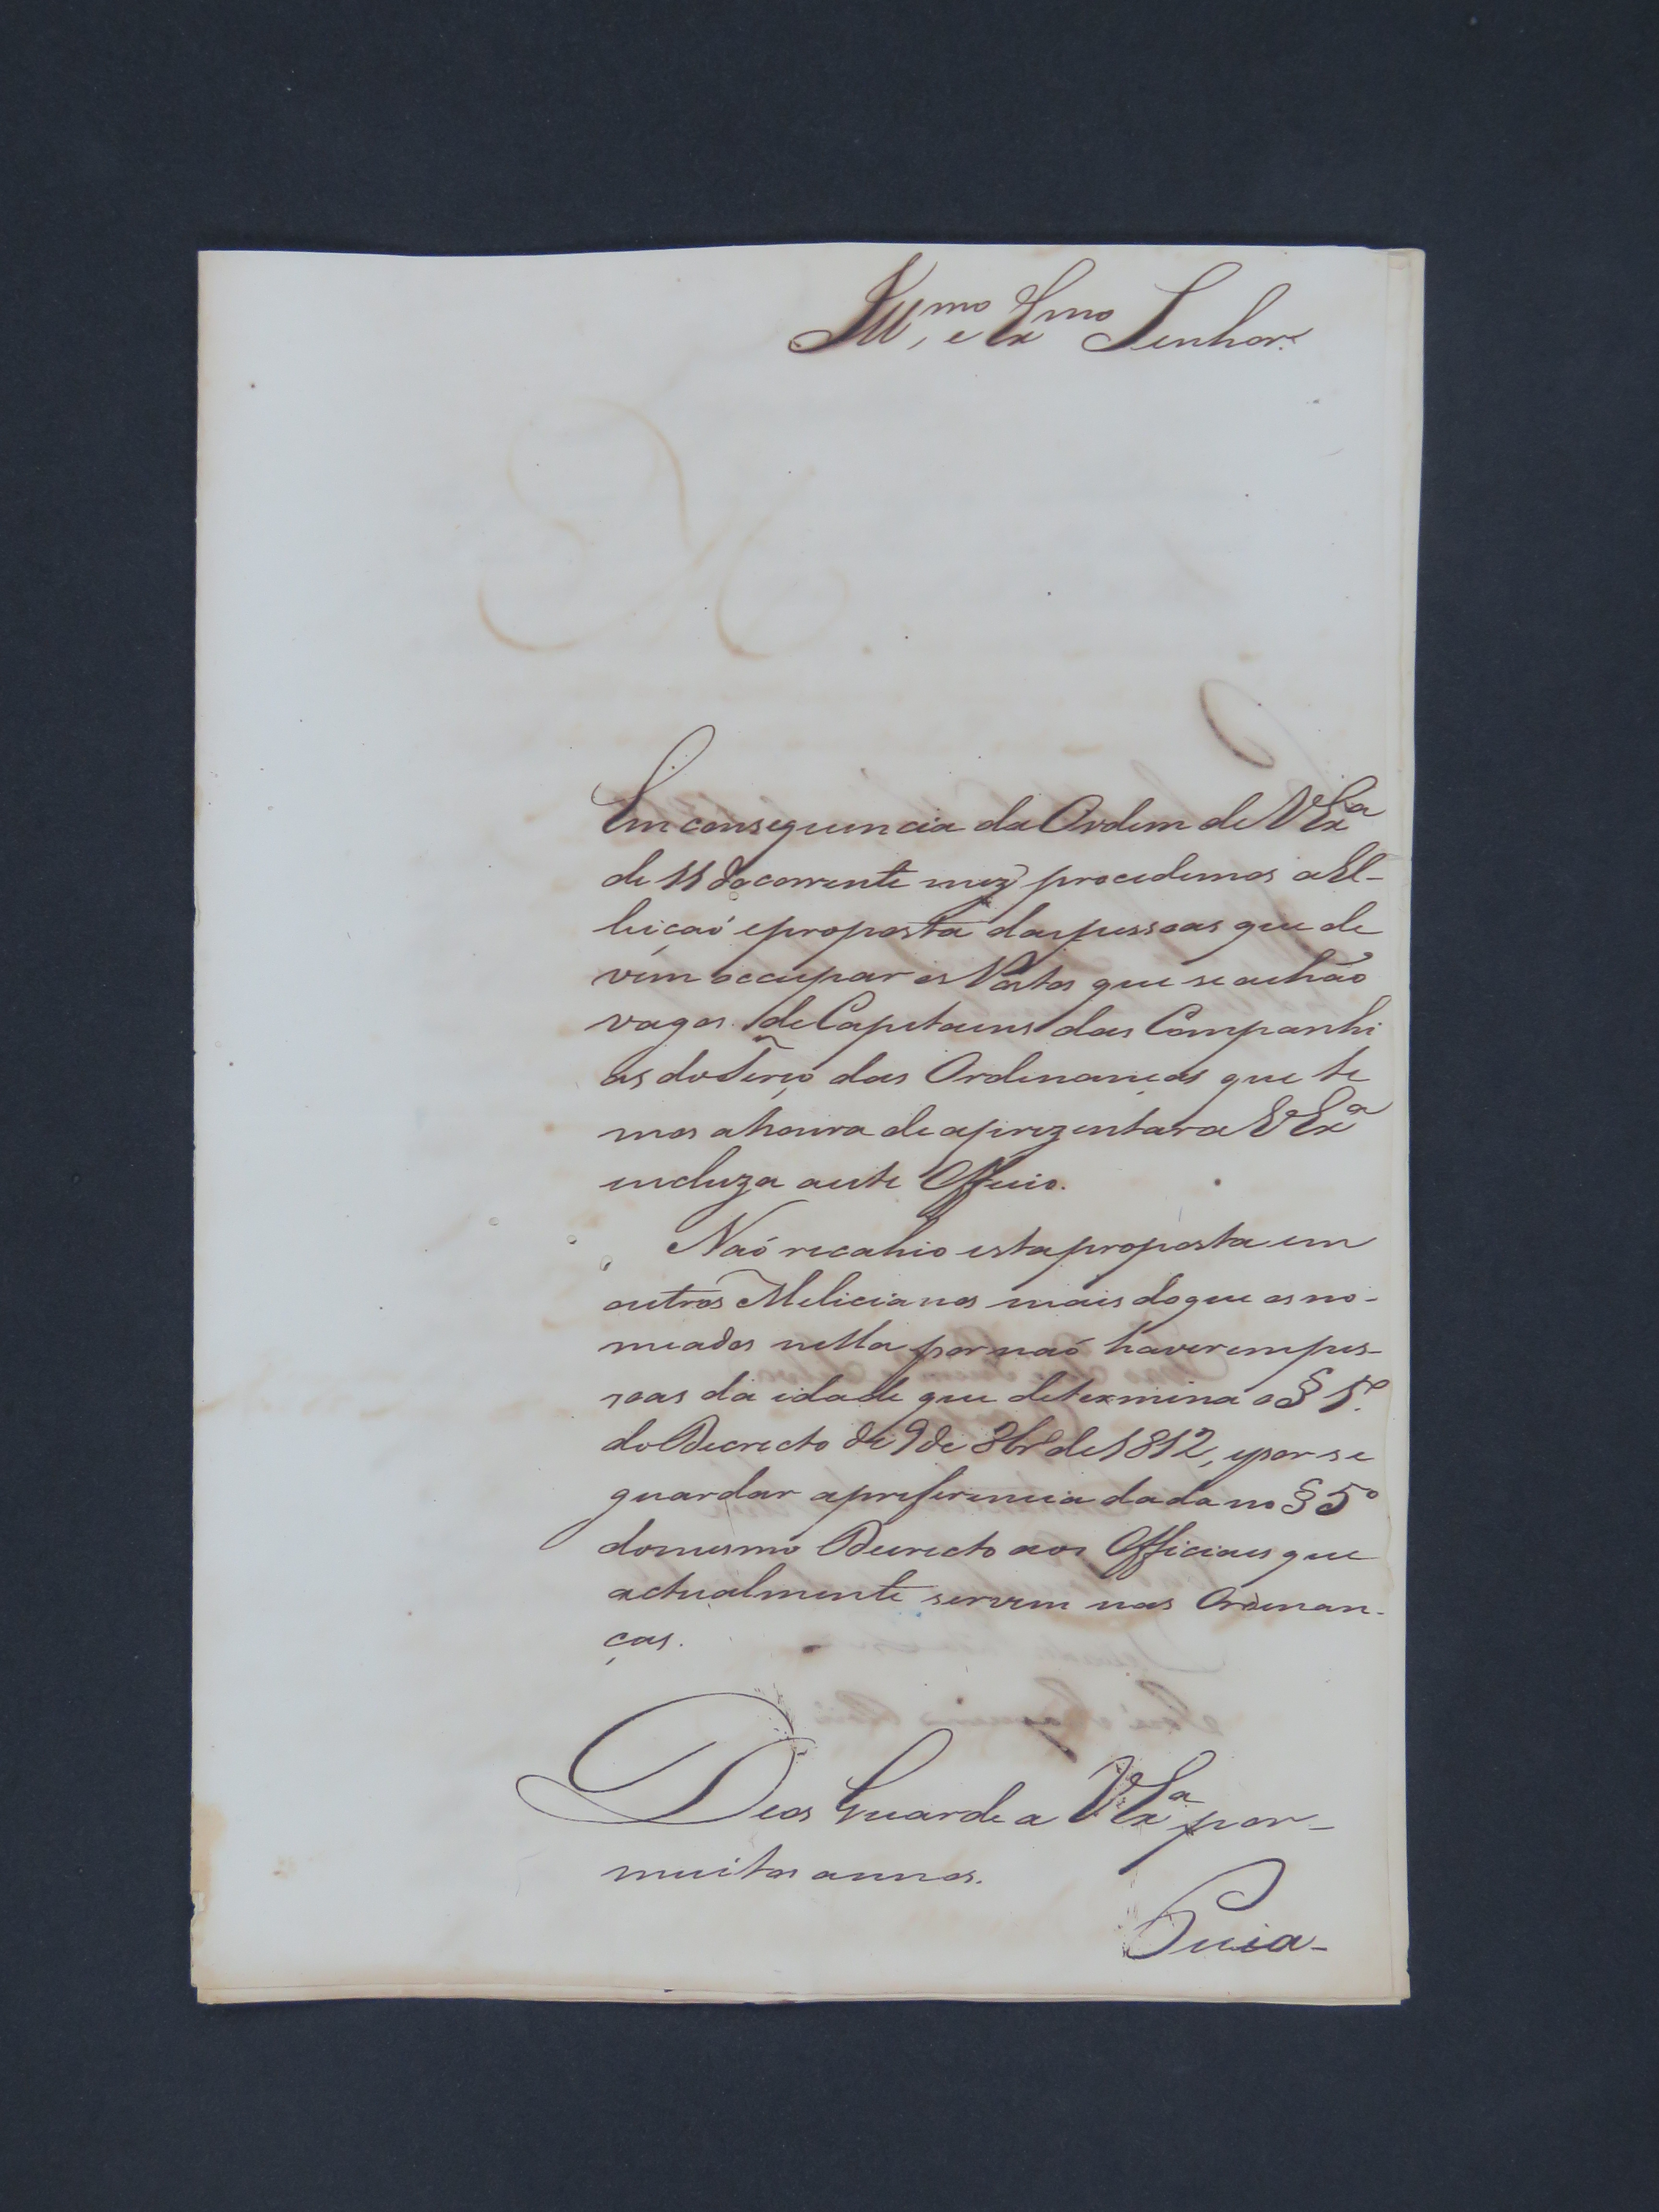 Ill.mo e Ex.mo Senhor.
Em consequencia da Ordem de V Ex.a
de 11 do corrente mez procedemos a El-
leiçaó e proposta das pessoas que de
vem occupar os Postos que se achão
vagos de Capitaens das Companhi
as do Terço das Ordenanças que te
mos a honra de aprezentar a V Ex.a
incluza a este Officio.
Naó recahio esta proposta em
outros Melicianos mais do que os no-
meados nella por naó haverem pes-
soas da idade que determina o § 5.º
do Decreto de 9 de 8br.o de 1812, e por se
guardar a preferencia dada no § 5º
do mesmo Decreto aos Officiaes que
actualmente servem nas Ordenan-
ças.
Deos Guarde a V Ex.a por
muitos annos.
Guia-